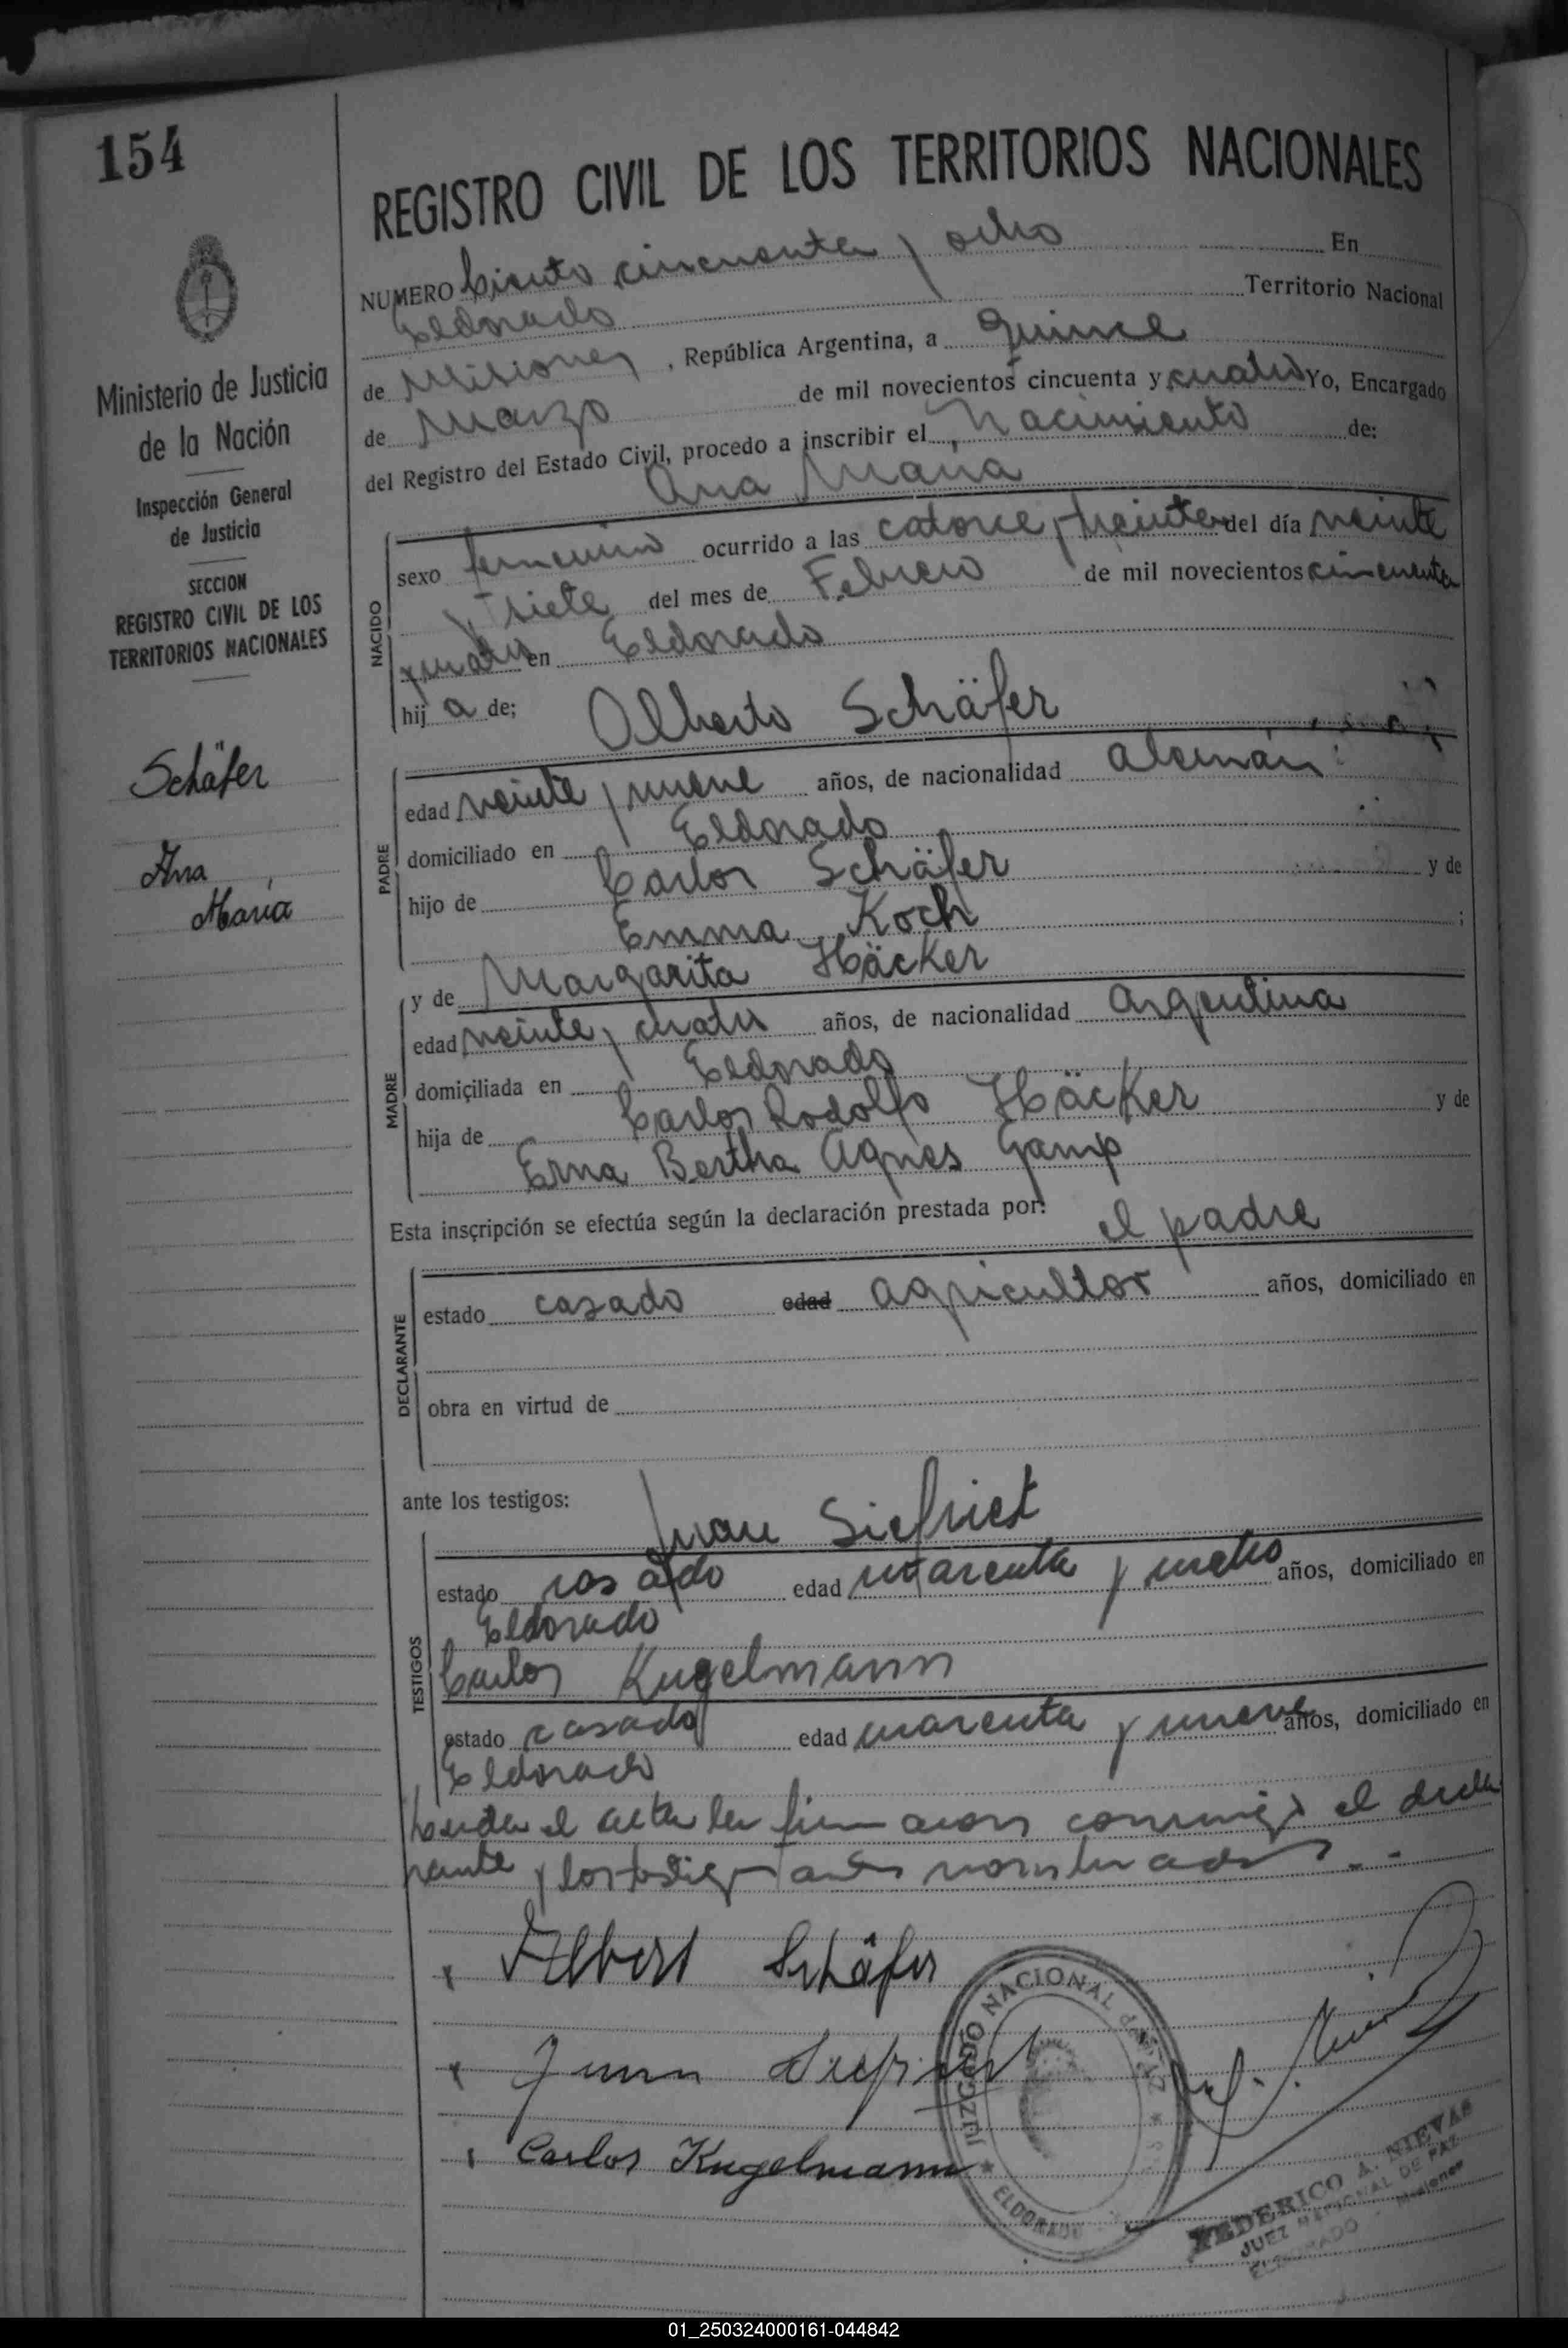 154
REGISTRO CIVIL DE LOS TERRITORIOS NACIONALES
Ministerio de Justicia
de la Nación
Inspección General
de Justicia
SECCION
REGISTRO CIVIL DE LOS
TERRITORIOS NACIONALES
Schäfer
Ana
María
NUMERO Ciento cincuenta y ocho En
Eldorado Territorio Nacional
de Misiones, República Argentina, a quince
de Marzo de mil novecientos cincuenta y cuatro Yo, Encargado
del Registro del Estado Civil, procedo a inscribir el nacimiento de:
Ana María
NACIDO
sexo femenino ocurrido a las catorce y treinta del día veinte
y siete del mes de Febrero de mil novecientos cincuenta
y cuatro en Eldorado
hij a de; Alberto Schäfer
PADRE
edad veinte y nueve años, de nacionalidad alemán
domiciliado en Eldorado
hijo de Carlos Schäfer y de
Emma Koch ;
y de Margarita Häcker
MADRE
edad veinte y cuatro años, de nacionalidad argentina
domiciliada en Eldorado
hija de Carlos Rodolfo Häcker y de
Erna Bertha Agnes Gamp
Esta inscripción se efectúa según la declaración prestada por: el padre
DECLARANTE
estado casado edad agricultor años, domiciliado en
obra en virtud de
ante los testigos: Juan Siefriet
TESTIGOS
estado casado edad cuarenta y años, domiciliado en
Eldorado
Carlos Kugelmann
estado casado edad cuarenta y nueve años, domiciliado en
Eldorado
el acta la firmaron conmigo el decla
rante y los testigos antes nombrados. -
Albert Schäfer
Juan Siefriet
Carlos Kugelmann
JUZGADO NACIONAL de PAZ
ELDORADO
FEDERICO A. NIEVAS
JUEZ NACIONAL DE PAZ
ELDORADO - Misiones
01_250324000161-044842